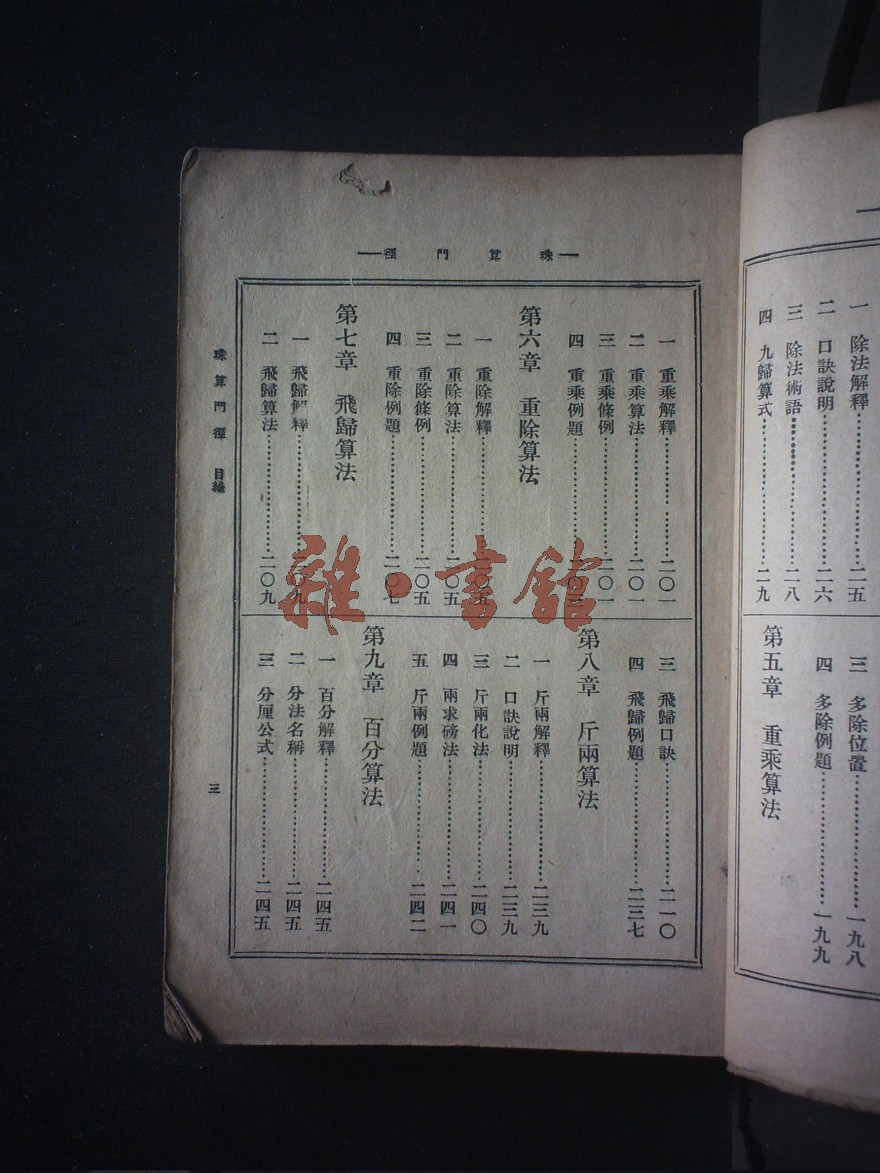 一　除法解釋………二五
二　口訣說明………二六
三　除法術語………二八
四　九歸算式………二九
三　多除位置………一九八
四　多除例題………一九九
第五章　重乘算法
珠算門徑
一　重乘解釋………二〇一
二　重乘算法………二〇一
三　重乘條例………二〇一
四　重乘例題………二〇三
第六章　重除算法
一　重除解釋………二〇五
二　重除算法………二〇五
三　重除條例………二〇五
四　重除例題………二〇七
第七章　飛歸算法
一　飛歸解釋………二〇九
二　飛歸算法………二〇九
三　飛歸口訣………二一〇
四　飛歸例題………二三七
第八章　斤兩算法
一　斤兩解釋………二三九
二　口訣說明………二三九
三　斤兩化法………二四〇
四　兩求磅法………二四一
五　斤兩例題………二四二
第九章　百分算法
一　百分解釋………二四五
二　分法名稱………二四五
三　分厘公式………二四五
珠算門徑　目錄
三
雜·書館